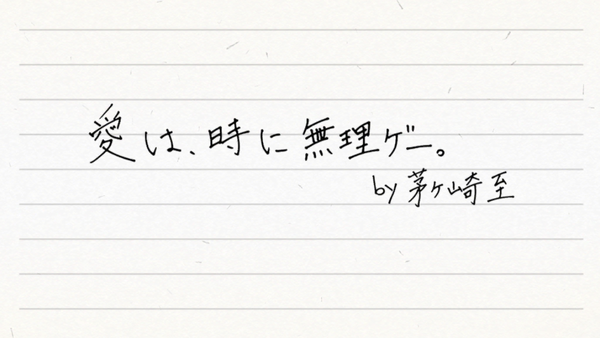 愛は、時に無理ゲー。
by 茅ヶ崎至